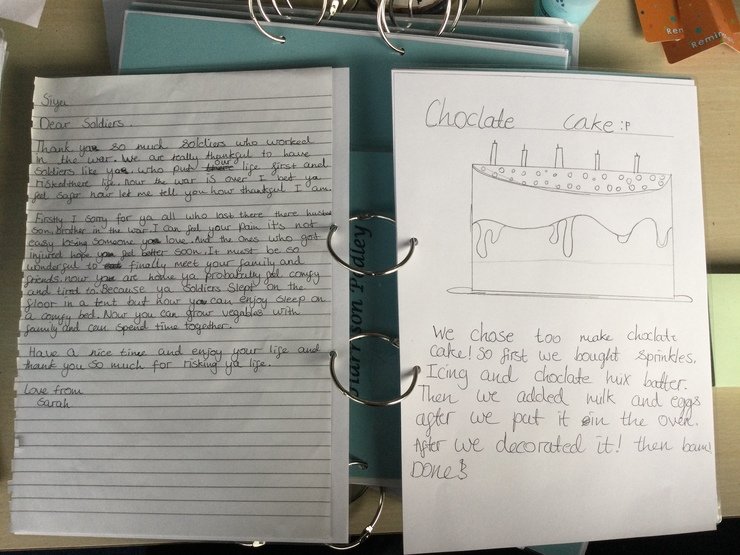 Siya
Dear Soldiers.
Thank you so much soldiers who worked
in the war. We are really thankful to have
soldiers like ya, who put our life first and
risked there life. now the war is over I bet ya
feel safer now let me tell you how thankful I am.
Firstly I sorry for ya all who lost there there husband
son, brother in the war. I can feel your pain it's not
easy losing someone you love. And the ones who got
injured hope you feel better soon. It must be so
wonderful to finally meet your family and
friends. now you are home ya probabilly feel comfy
and tired to. Because ya soldiers slept on the
floor in a tent but now you can enjoy sleep on
a comfy bed. Now you can grow vegables with
family and can spend time together.
Have a nice time and enjoy your life and
thank you so much for risking ya life.
Love from
Sarah
Harrison Padley
Choclate cake :P
We chose too make choclate
cake! So first we bought sprinkles,
Icing and choclate mix batter.
Then we added milk and eggs
after we put it in the oven.
After we decorated it! then bam!
Done!
Ren
Remin